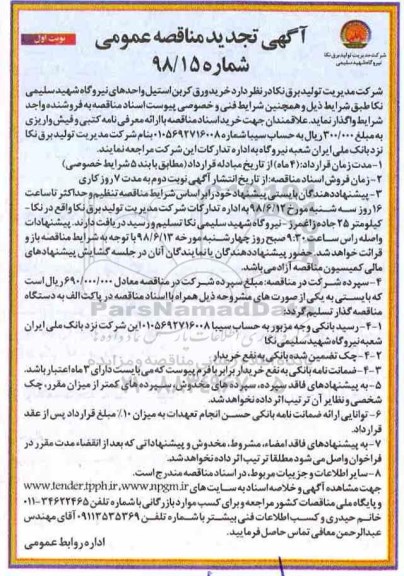 نوبت اول
آگهی تجدید مناقصه عمومی
شماره ۹۸/۱۵
شرکت مدیریت تولید برق نکا
نیروگاه شهید سلیمی
شرکت مدیریت تولید برق نکا در نظر دارد خرید ورق کربن استیل واحدهای نیروگاه شهید سلیمی
نکا طبق شرایط ذیل و همچنین شرایط فنی و خصوصی پیوست اسناد مناقصه به فروشنده واجد
شرایط واگذار نماید. علاقمندان جهت خرید اسناد مناقصه با ارائه معرفی نامه کتبی و فیش واریزی
به مبلغ ۳۰۰/۰۰۰ ریال به حساب سیبا شماره ۰۱۰۵۶۹۲۷۱۶۰۰۸ بنام شرکت مدیریت تولید برق نکا
نزد بانک ملی ایران شعبه نیروگاه به اداره تدارکات این شرکت مراجعه نمایند.
۱-مدت زمان قرارداد: (۴ماه) از تاریخ مبادله قرارداد (مطابق با بند ۵ شرایط خصوصی)
۲- زمان فروش اسناد مناقصه: از تاریخ انتشار آگهی نوبت دوم به مدت ۷ روز کاری
۳- پیشنهاددهندگان بایستی پیشنهاد خود را بر اساس شرایط مناقصه تنظیم و حداکثر تا ساعت
۱۶ روز سه شنبه مورخ ۹۸/۶/۱۲ به اداره تدارکات شرکت مدیریت تولید برق نکا واقع در نکا -
کیلومتر ۲۵ جاده زاغمرز - نیروگاه شهید سلیمی نکا تسلیم و رسید دریافت دارند. پیشنهادات
واصله راس ساعت ۹:۳۰ صبح روز چهارشنبه مورخه ۹۸/۶/۱۳ با توجه به شرایط مناقصه باز و
قرائت خواهد شد. حضور پیشنهاددهندگان یا نمایندگان آنان در جلسه گشایش پیشنهادهای
مالی کمیسیون مناقصه آزاد می باشد.
۴- سپرده شرکت در مناقصه: مبلغ سپرده شرکت در مناقصه معادل ۶۹۰/۰۰۰/۰۰۰ ریال است
که بایستی به یکی از صورت های مشروحه ذیل همراه با اسناد مناقصه در پاکت الف به دستگاه
مناقصه گذار تسلیم گردد:
۴-۱- رسید بانکی وجه مزبور به حساب سیبا ۰۱۰۵۶۹۲۷۱۶۰۰۸ این شرکت نزد بانک ملی ایران
شعبه نیروگاه شهید سلیمی نکا
۴-۲- چک تضمین شده بانکی به نفع خریدار
۴-۳- ضمانت نامه بانکی به نفع خریدار برابر با فرم پیوست که می بایست دارای ۳ ماه اعتبار باشد.
۵- به پیشنهادهای فاقد سپرده، سپرده های مخدوش، سپرده های کمتر از میزان مقرر، چک
شخصی و نظایر آن ترتیب اثر داده نخواهد شد.
۶- توانایی ارائه ضمانت نامه بانکی حسن انجام تعهدات به میزان ۱۰٪ مبلغ قرارداد پس از عقد
قرارداد.
۷- به پیشنهادهای فاقد امضاء، مشروط، مخدوش و پیشنهاداتی که بعد از انقضاء مدت مقرر در
فراخوان واصل می شود مطلقا ترتیب اثر داده نخواهد شد.
۸- سایر اطلاعات و جزییات مربوط، در اسناد مناقصه مندرج است.
جهت مشاهده آگهی و خلاصه اسناد به سایت های www.tender.tpph.ir, www.npgm.ir
و پایگاه ملی مناقصات کشور مراجعه و برای کسب موارد بازرگانی با شماره تلفن ۳۴۶۲۲۴۶۵-۰۱۱
خانم حیدری و کسب اطلاعات فنی بیشتر با شماره تلفن ۰۹۱۱۳۵۳۵۳۶۹ آقای مهندس
عبدالرحمن معافی تماس حاصل فرمایید.
اداره روابط عمومی